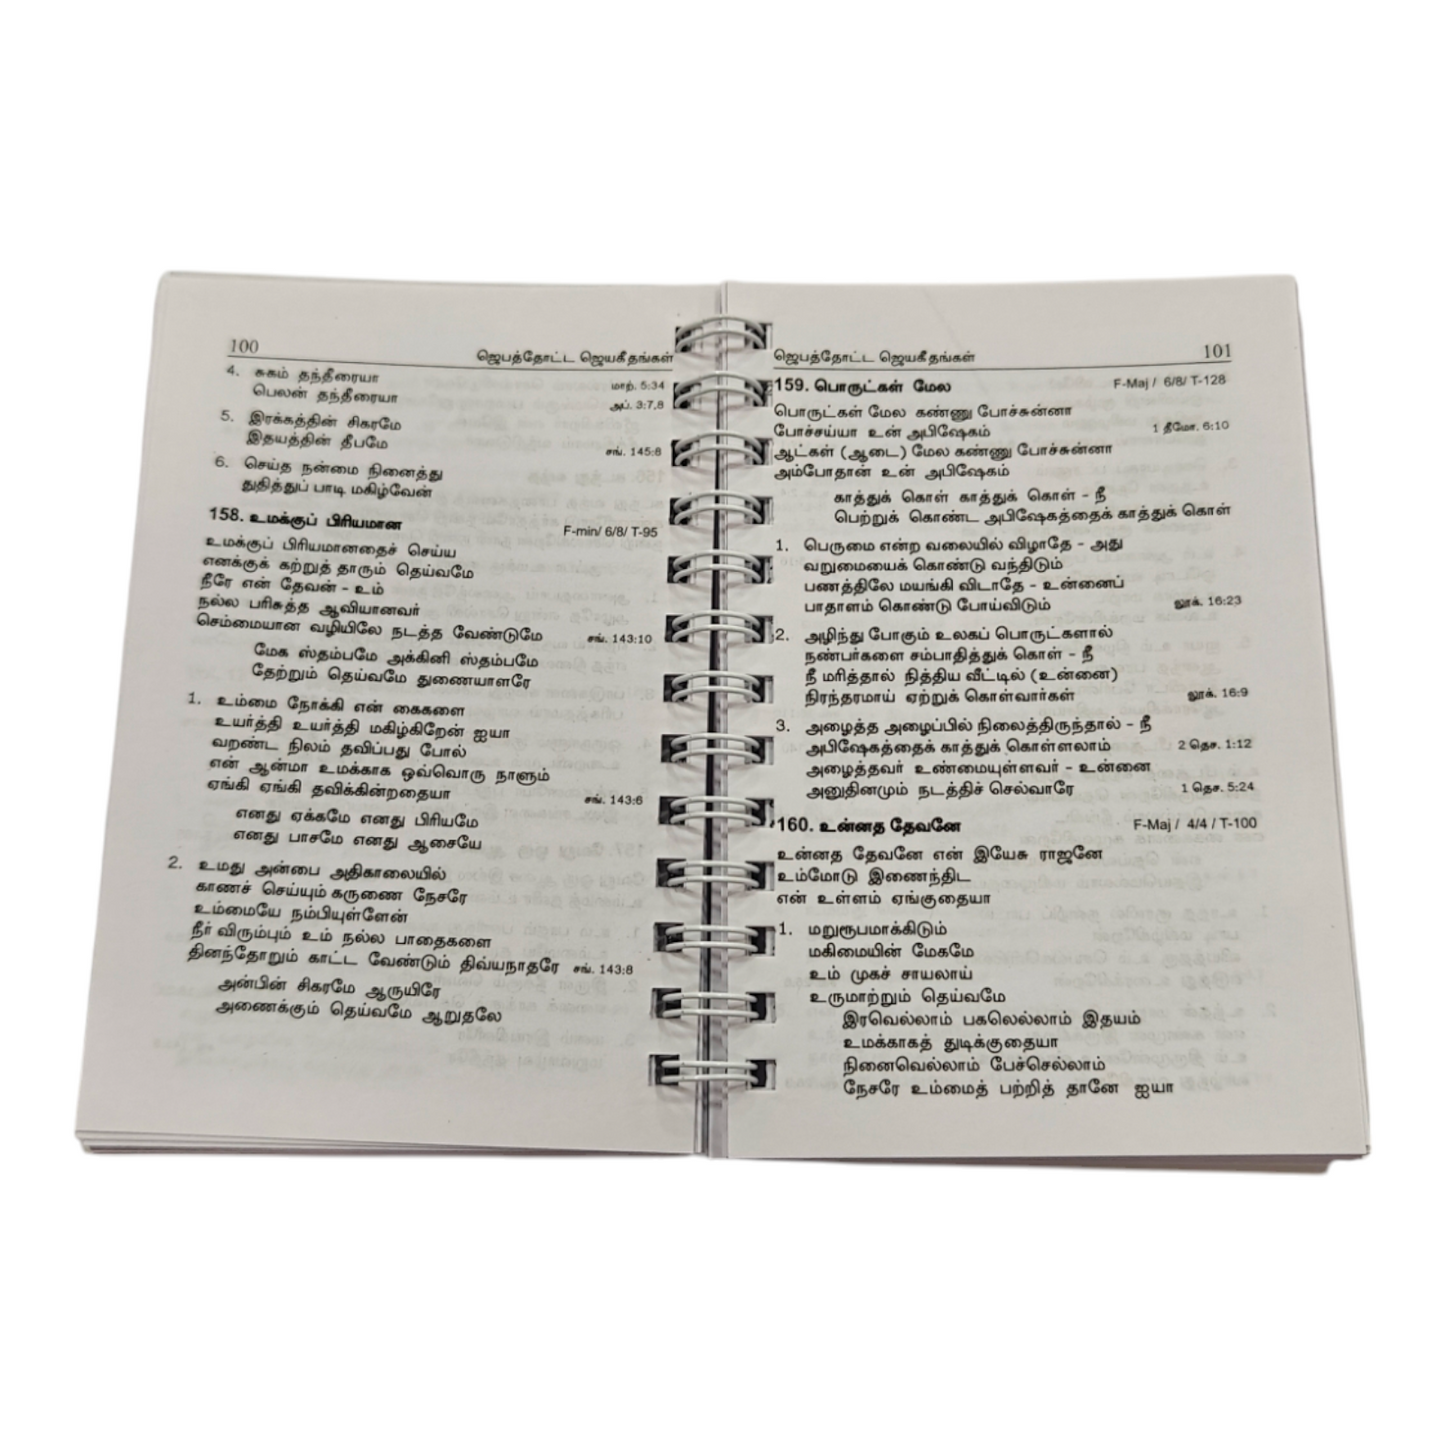 100
ஜெபத்தோட்ட ஜெயகீதங்கள்
4. சுகம் தந்தீரையா
பெலன் தந்தீரையா
மாற். 5:34
அப். 3:7,8
5. இரக்கத்தின் சிகரமே
இதயத்தின் தீபமே
சங். 145:8
6. செய்த நன்மை நினைத்து
துதித்துப் பாடி மகிழ்வேன்
158. உமக்குப் பிரியமான F-min/ 6/8/ T-95
உமக்குப் பிரியமானதைச் செய்ய
எனக்குக் கற்றுத் தாரும் தெய்வமே
நீரே என் தேவன் - உம்
நல்ல பரிசுத்த ஆவியானவர்
செம்மையான வழியிலே நடத்த வேண்டுமே சங். 143:10
மேக ஸ்தம்பமே அக்கினி ஸ்தம்பமே
தேற்றும் தெய்வமே துணையாளரே
1. உம்மை நோக்கி என் கைகளை
உயர்த்தி உயர்த்தி மகிழ்கிறேன் ஐயா
வறண்ட நிலம் தவிப்பது போல்
என் ஆன்மா உமக்காக ஒவ்வொரு நாளும்
ஏங்கி ஏங்கி தவிக்கின்றதையா சங். 143:6
எனது ஏக்கமே எனது பிரியமே
எனது பாசமே எனது ஆசையே
2. உமது அன்பை அதிகாலையில்
காணச் செய்யும் கருணை நேசரே
உம்மையே நம்பியுள்ளேன்
நீர் விரும்பும் உம் நல்ல பாதைகளை
தினந்தோறும் காட்ட வேண்டும் திவ்யநாதரே சங். 143:8
அன்பின் சிகரமே ஆருயிரே
அணைக்கும் தெய்வமே ஆறுதலே
ஜெபத்தோட்ட ஜெயகீதங்கள்
101
159. பொருட்கள் மேல F-Maj / 6/8/ T-128
பொருட்கள் மேல கண்ணு போச்சுன்னா
போச்சய்யா உன் அபிஷேகம் 1 தீமோ. 6:10
ஆட்கள் (ஆடை) மேல கண்ணு போச்சுன்னா
அம்போதான் உன் அபிஷேகம்
காத்துக் கொள் காத்துக் கொள் - நீ
பெற்றுக் கொண்ட அபிஷேகத்தைக் காத்துக் கொள்
1. பெருமை என்ற வலையில் விழாதே - அது
வறுமையைக் கொண்டு வந்திடும்
பணத்திலே மயங்கி விடாதே - உன்னைப்
பாதாளம் கொண்டு போய்விடும் லூக். 16:23
2. அழிந்து போகும் உலகப் பொருட்களால்
நண்பர்களை சம்பாதித்துக் கொள் - நீ
நீ மரித்தால் நித்திய வீட்டில் (உன்னை)
நிரந்தரமாய் ஏற்றுக் கொள்வார்கள் லூக். 16:9
3. அழைத்த அழைப்பில் நிலைத்திருந்தால் - நீ
அபிஷேகத்தைக் காத்துக் கொள்ளலாம் 2 தெச. 1:12
அழைத்தவர் உண்மையுள்ளவர் - உன்னை
அனுதினமும் நடத்திச் செல்வாரே 1 தெச. 5:24
160. உன்னத தேவனே F-Maj / 4/4 / T-100
உன்னத தேவனே என் இயேசு ராஜனே
உம்மோடு இணைந்திட
என் உள்ளம் ஏங்குதையா
1. மறுரூபமாக்கிடும்
மகிமையின் மேகமே
உம் முகச் சாயலாய்
உருமாற்றும் தெய்வமே
இரவெல்லாம் பகலெல்லாம் இதயம்
உமக்காகத் துடிக்குதையா
நினைவெல்லாம் பேச்செல்லாம்
நேசரே உம்மைத் பற்றித் தானே ஐயா